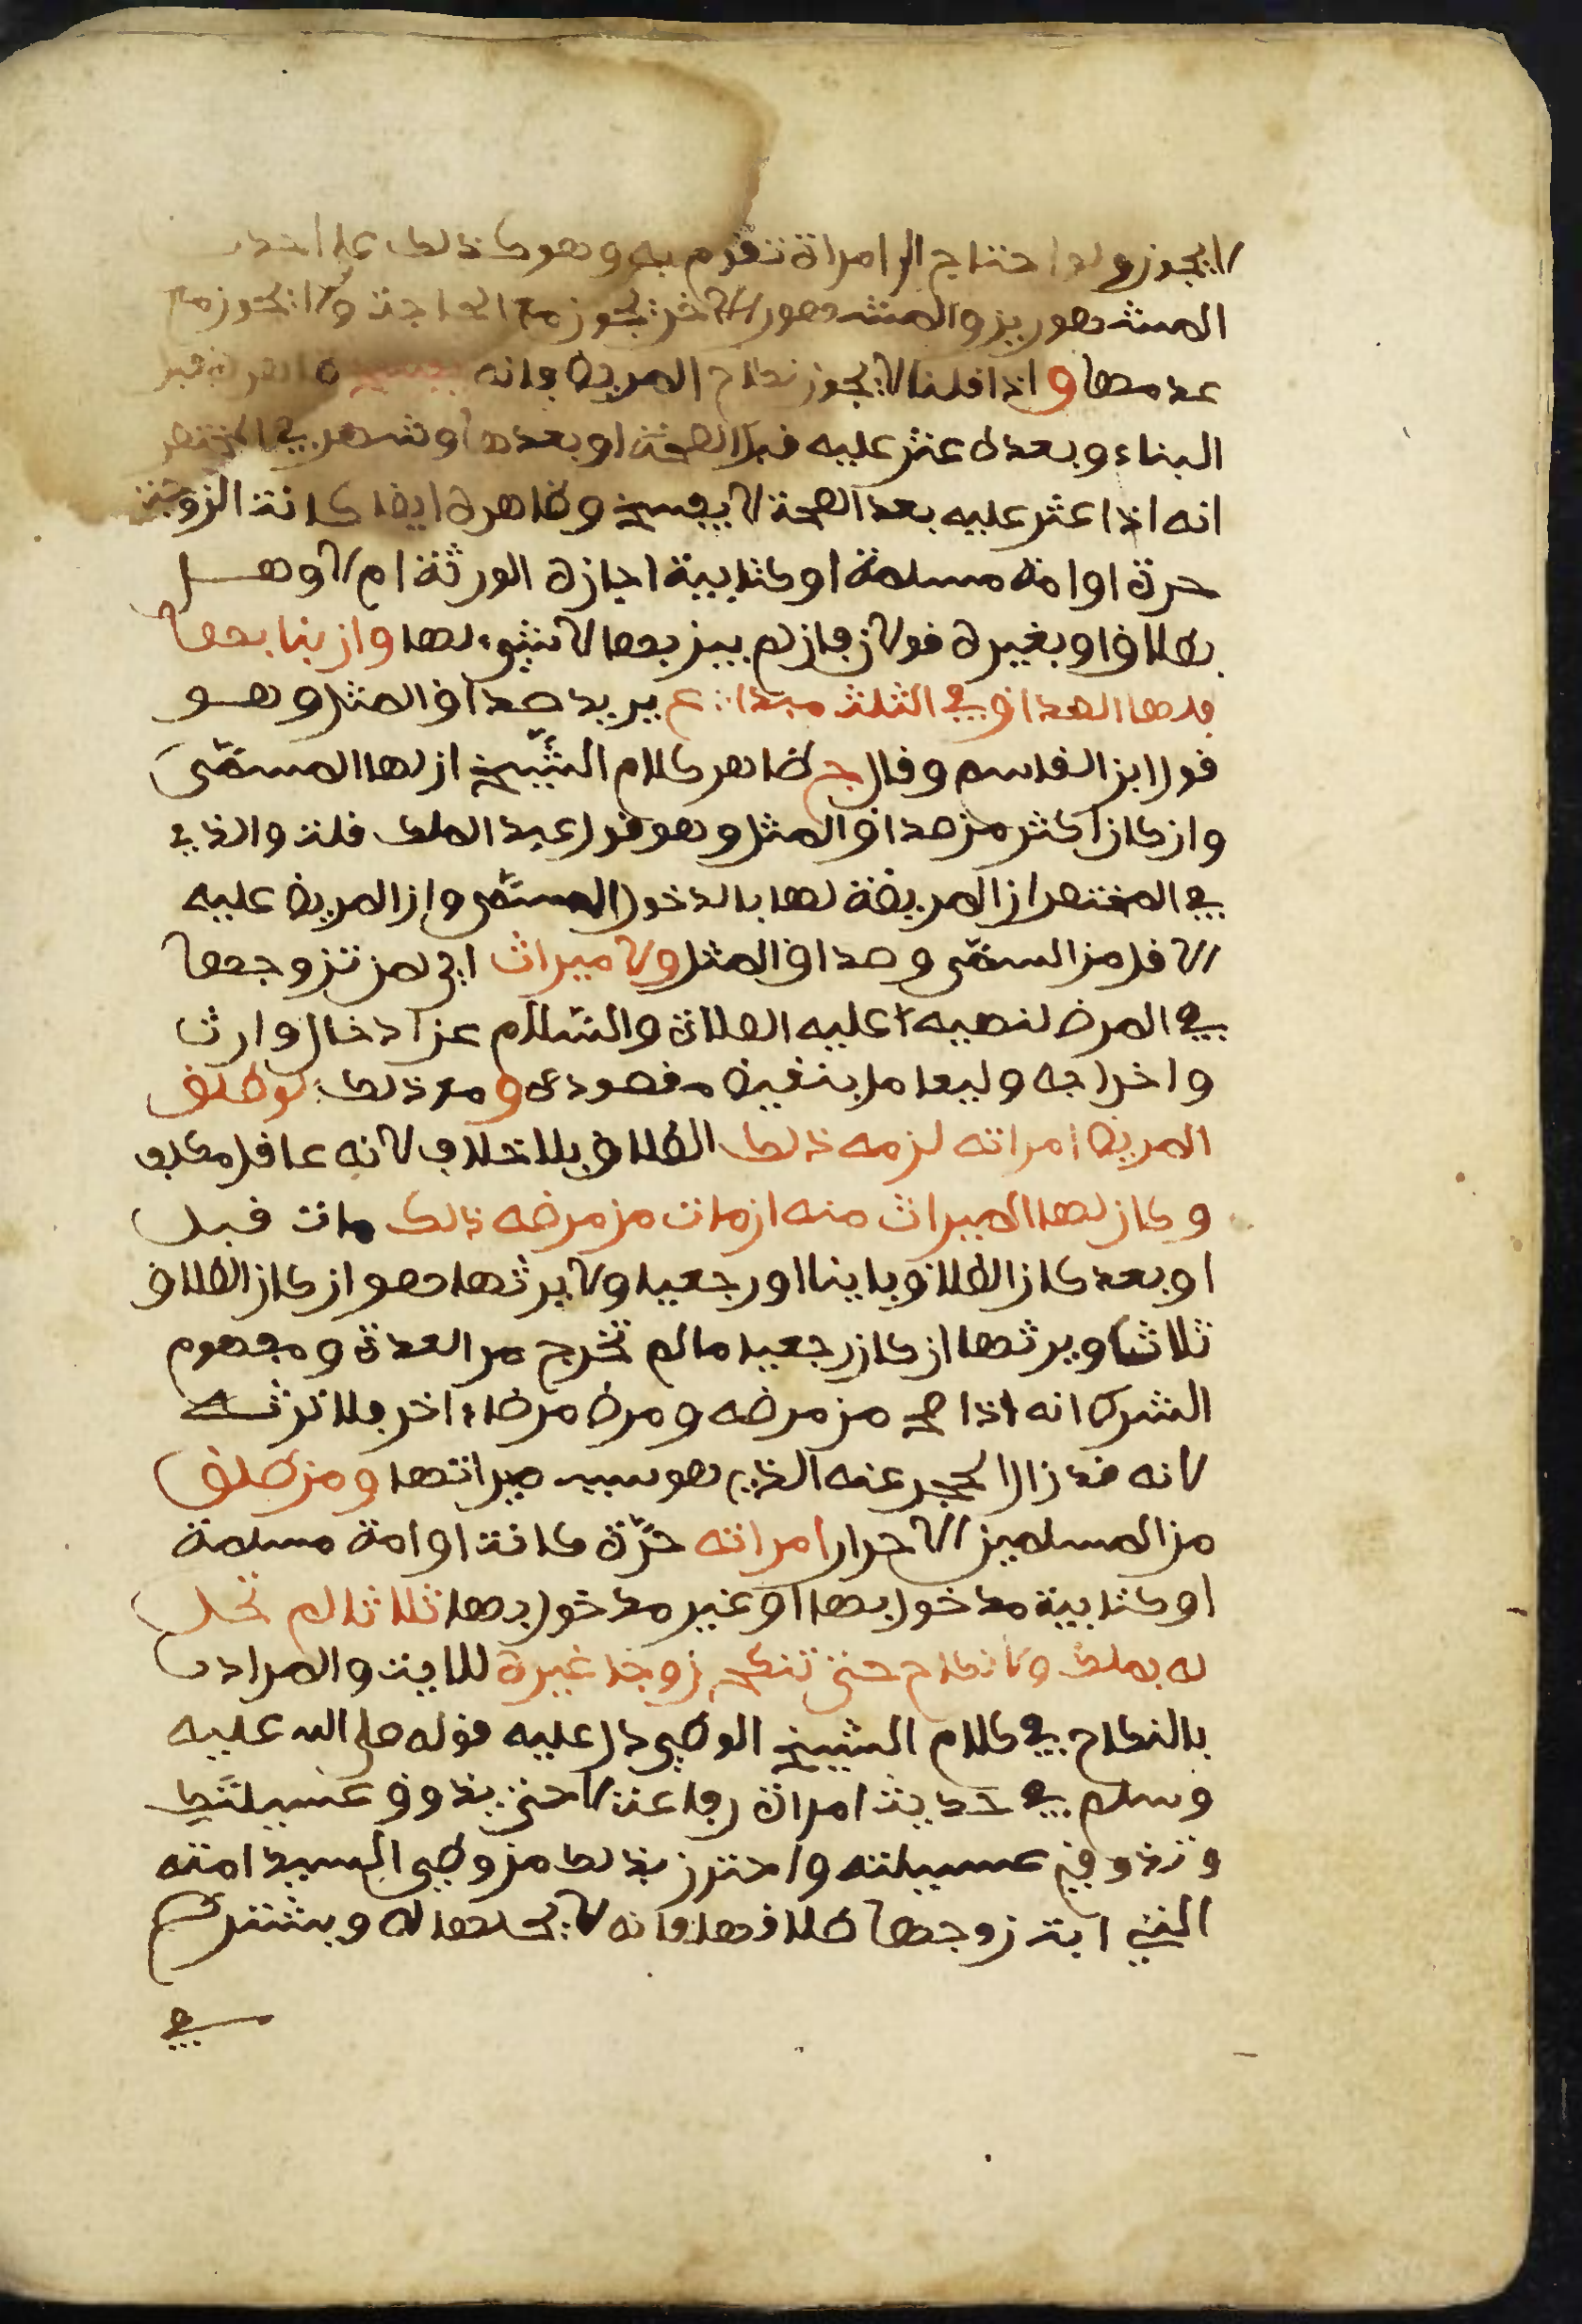 لا يجوز ولو احتاج الى امراة تقوم به وهو كذلك على احد
المشهورين والمشهور الاخر يجوز مع الحاجة ولا يجوز مع
عدمها واذا قلنا لا يجوز نكاح المريض فانه يفسخ قبل
البناء وبعده عثر عليه قبل الصحة او بعدها وشهر في المختصر
انه اذا عثر عليه بعد الصحة لا يفسخ وظاهره ايضا كانت الزوجة
حرة او امة مسلمة او كتابية اجازه الورثة ام لا وهل
بطلاق او بغيره قولان فان لم يبن بها لا شيء لها وان بنا بها
فلها الصداق في الثلث مبدا ع يريد صداق المثل وهو
قول ابن القاسم وقال ج ظاهر كلام الشيخ ان لها المسمى
وان كان اكثر من صداق المثل وهو قول عبد الملك قلت والذي
في المختصر ان المريضة لها بالدخول المسمى وان المريض عليه
الاقل من المسمى وصداق المثل ولا ميراث اي لمن تزوجها
في المرض لنهيه عليه الصلاة والسلام عن ادخال وارث
واخراجه وليعامل بنقيض مقصوده ومع ذلك لو طلق
المريض امراته لزمه ذلك الطلاق بلا خلاف لانه عاقل مكلف
وكان لها الميراث منه ان مات من مرضه ذلك مات قبل
او بعد كان الطلاق باينا او رجعيا ولا يرثها هو ان كان الطلاق
ثلاثا ويرثها ان كان رجعيا ما لم تخرج من العدة ومفهوم
الشرط انه اذا صح من مرضه ومرض مرضا اخر فلا ترثه
لانه قد زال الحجر عنه الذي هو سبب ميراثها ومن طلق
من المسلمين الاحرار امراته حرّة كانت او امة مسلمة
او كتابية مدخول بها او غير مدخول بها ثلاثا لم تحل
له بملك ولا نكاح حتى تنكح زوجا غيره للاية والمراد
بالنكاح في كلام الشيخ الوطي دل عليه قوله صلى الله عليه
وسلم في حديث امراة رفاعة لا حتى يذوق عسيلتك
وتذوقي عسيلته واحترز بذلك من وطي السيد امته
التي ابت زوجها طلاقها فانه لا يحلها له ويشترط
في